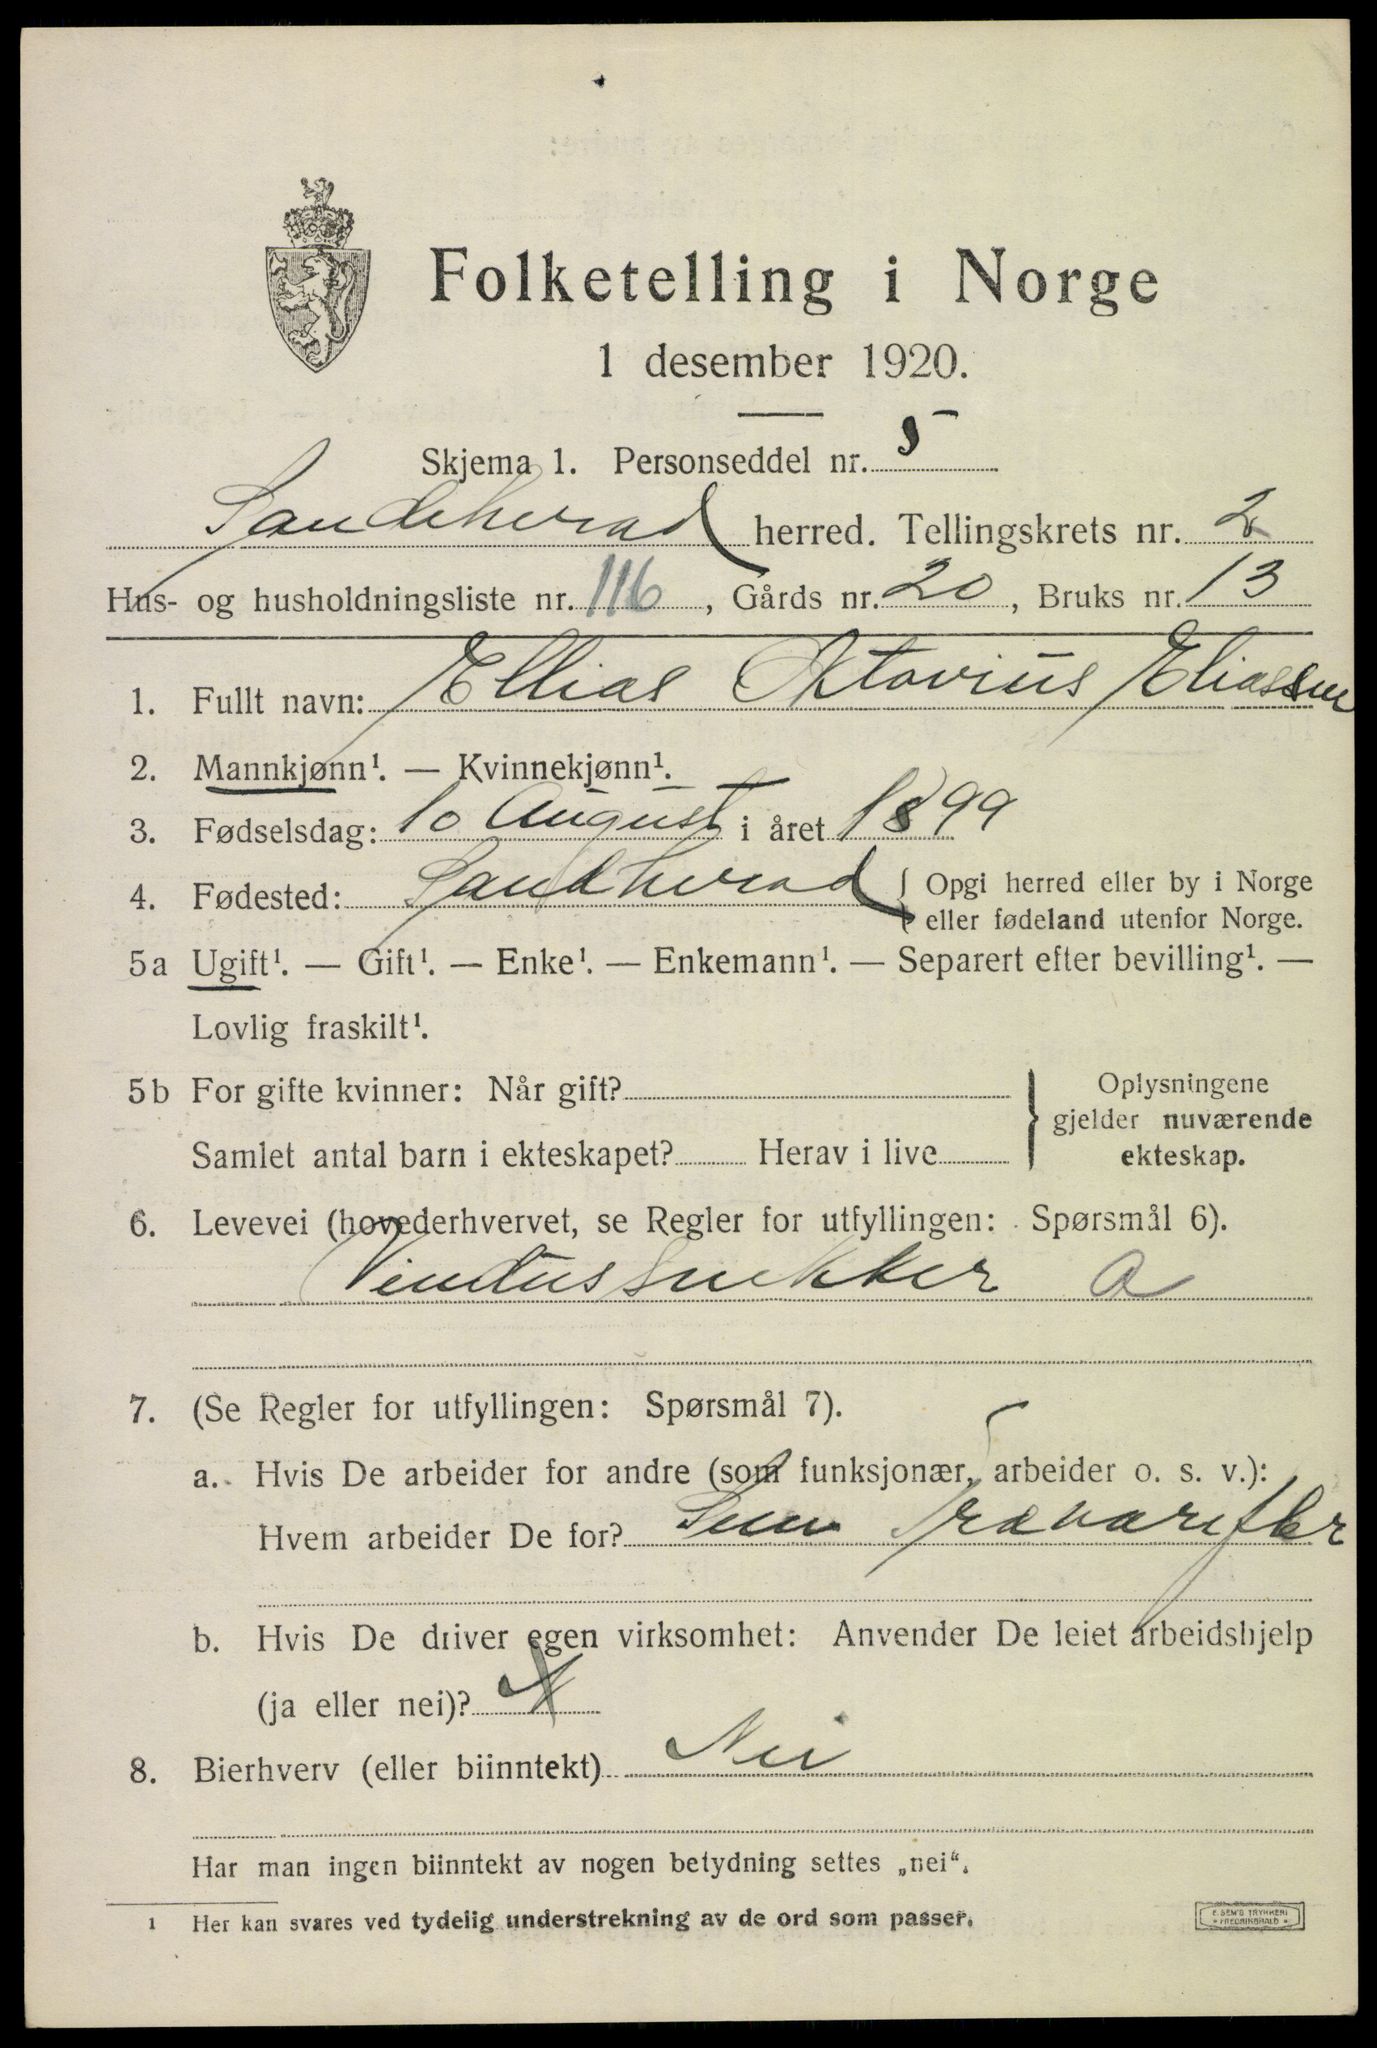 Folketelling i Norge
1 desember 1920.
Skjema 1. Personseddel nr. 5
Sandeherad herred. Tellingskrets nr. 2
Hus- og husholdningsliste nr. 116, Gårds nr. 20, Bruks nr. 13
1. Fullt navn: Ellias Oktavius Eliassen
2. Mannkjønn¹. — Kvinnekjønn¹.
3. Fødselsdag: 10 August i året 1899
4. Fødested: Sandherad { Opgi herred eller by i Norge
eller fødeland utenfor Norge.
5a Ugift¹. — Gift¹. — Enke¹. — Enkemann¹. — Separert efter bevilling¹. —
Lovlig fraskilt¹.
5b For gifte kvinner: Når gift? } Oplysningene
gjelder nuværende
Samlet antal barn i ekteskapet? Herav i live
ekteskap.
6. Levevei (hovederhvervet, se Regler for utfyllingen: Spørsmål 6).
Vindussnekker a
7. (Se Regler for utfyllingen: Spørsmål 7).
a. Hvis De arbeider for andre (som funksjonær, arbeider o. s. v.):
Hvem arbeider De for? Trævarefbr
b. Hvis De driver egen virksomhet: Anvender De leiet arbeidshjelp
(ja eller nei)?
8. Bierhverv (eller biinntekt) Nei
Har man ingen biinntekt av nogen betydning settes „nei“.
¹ Her kan svares ved tydelig understrekning av de ord som passer.
E. SEM'S TRYKKERI
FREDRIKSHALD